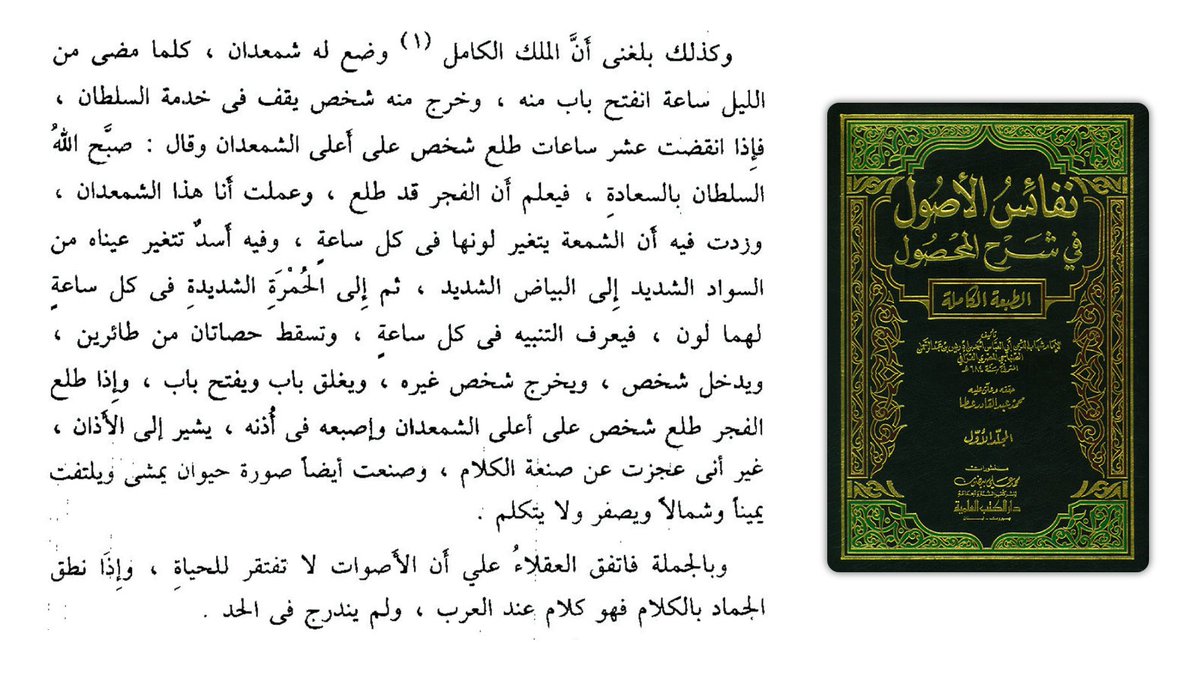 وكذلك بلغنى أَنَّ الملك الكامل (١) وضع له شمعدان ، كلما مضى من
الليل ساعة انفتح باب منه ، وخرج منه شخص يقف فى خدمة السلطان ،
فإِذا انقضت عشر ساعات طلع شخص على أَعلى الشمعدان وقال : صبَّح اللهُ
السلطان بالسعادةِ ، فيعلم أَن الفجر قد طلع ، وعملت أَنا هذا الشمعدان ،
وزدت فيه أَن الشمعة يتغير لونها فى كل ساعةٍ ، وفيه أَسدٌ تتغير عيناه من
السواد الشديد إِلى البياض الشديد ، ثم إِلى الحُمْرَةِ الشديدةِ فى كل ساعةٍ
لهما لون ، فيعرف التنبيه فى كل ساعةٍ ، وتسقط حصاتان من طائرين ،
ويدخل شخص ، ويخرج شخص غيره ، ويغلق باب ويفتح باب ، وإِذا طلع
الفجر طلع شخص على أَعلى الشمعدان وإِصبعه فى أُذنه ، يشير إِلى الأَذان ،
غير أَنى عجزت عن صنعة الكلام ، وصنعت أَيضاً صورة حيوان يمشى ويلتفت
يميناً وشمالاً ويصفر ولا يتكلم .
وبالجملة فاتفق العقلاءُ علي أَن الأَصوات لا تفتقر للحياةِ ، وإِذَا نطق
الجماد بالكلام فهو كلام عند العرب ، ولم يندرج فى الحد .
نفائس الأصول
في شرح المحصول
الطبعة الكاملة
تأليف
المتوفى سنة ٦٨٤ هـ
حققه وعلق عليه
محمد عبد القادر عطا
المجلد الأول
منشورات
محمد علي بيضون
دار الكتب العلمية
بيروت - لبنان